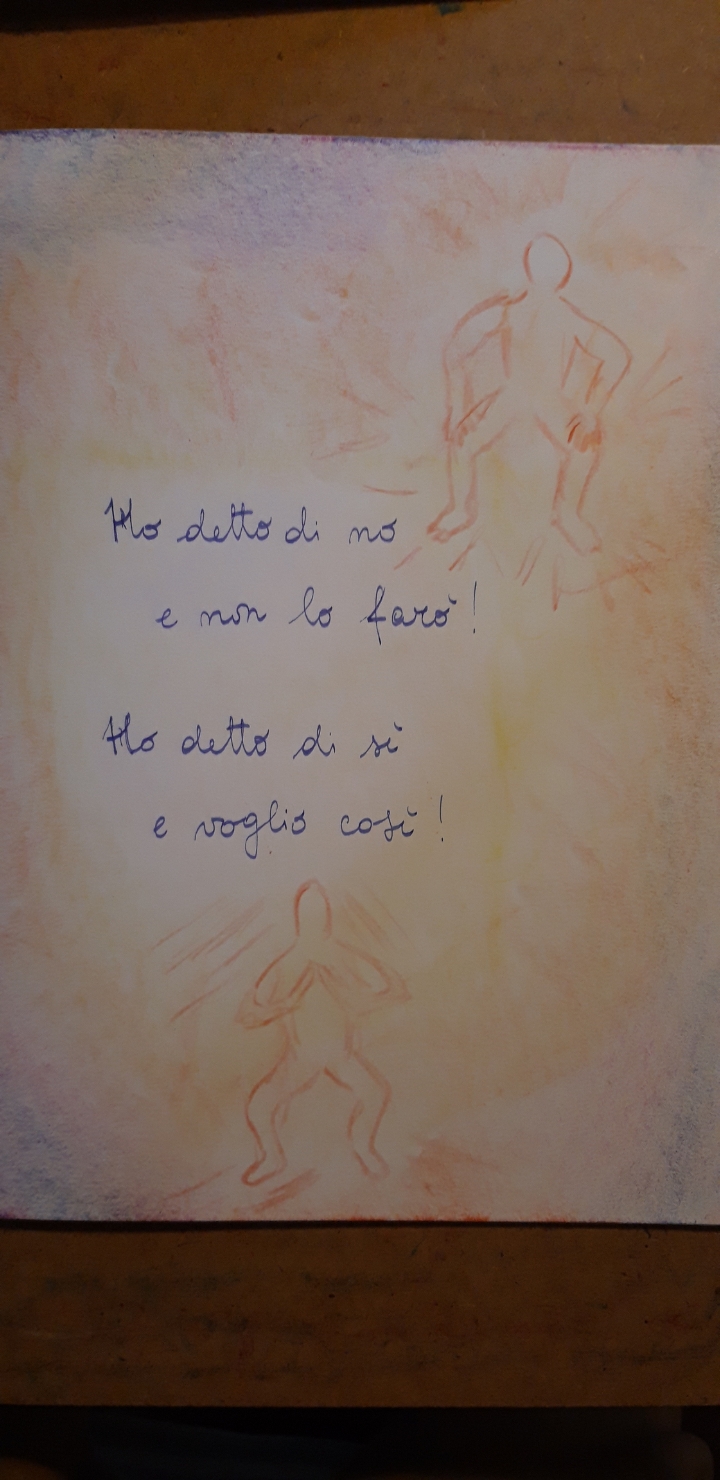 Ho detto di no
e non lo farò!
Ho detto di sì
e voglio così!